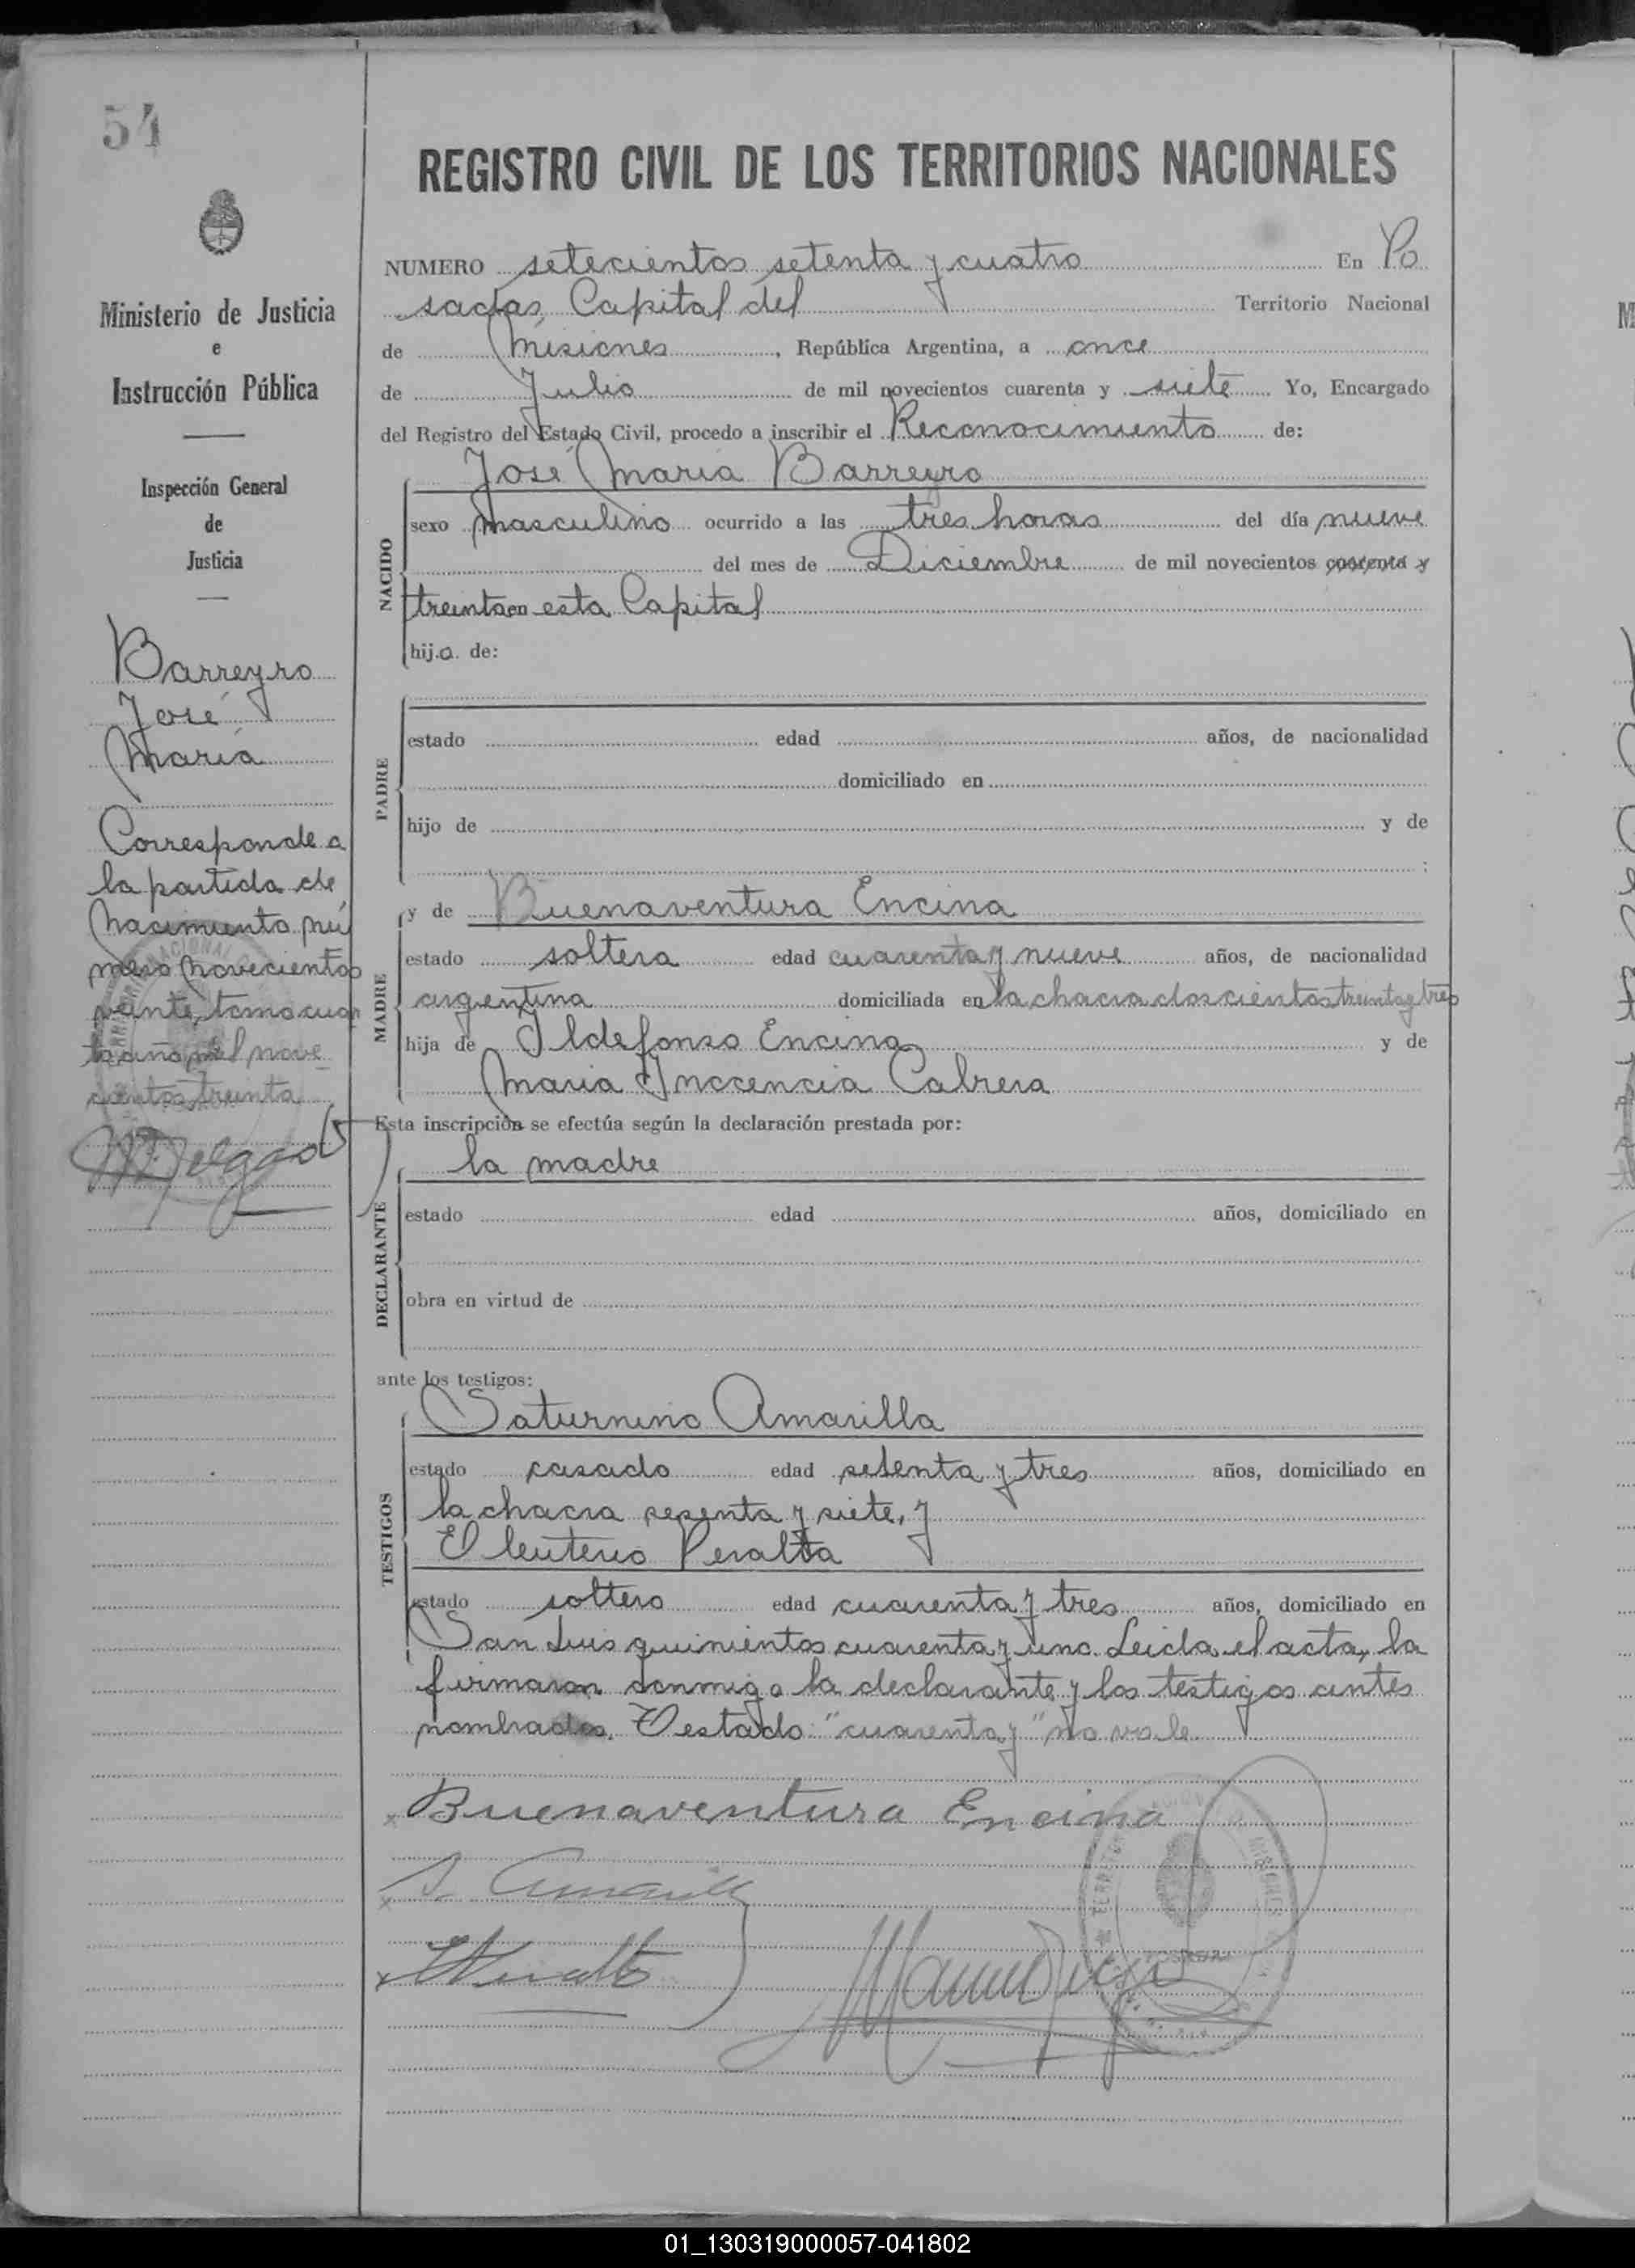 54
REGISTRO CIVIL DE LOS TERRITORIOS NACIONALES
Ministerio de Justicia
e
Instrucción Pública
Inspección General
de
Justicia
Barreyro
José
María
Corresponde a
la partida de
Nacimiento nú
mero novecientos
veinte, tomo cuar
to año mil nove
cientos treinta
NUMERO setecientos setenta y cuatro En Po
sadas, Capital del Territorio Nacional
de Misiones, República Argentina, a once
de Julio de mil novecientos cuarenta y siete Yo, Encargado
del Registro del Estado Civil, procedo a inscribir el Reconocimiento de:
José María Barreyro
NACIDO
sexo masculino ocurrido a las tres horas del día nueve
del mes de Diciembre de mil novecientos cuarenta y
treinta en esta Capital
hijo de:
PADRE
estado edad años, de nacionalidad
domiciliado en
hijo de y de
;
MADRE
y de Buenaventura Encina
estado soltera edad cuarenta y nueve años, de nacionalidad
argentina domiciliada en la chacra doscientos treinta y tres
hija de Ildefonso Encina y de
Maria Inocencia Cabrera
Esta inscripción se efectúa según la declaración prestada por:
la madre
DECLARANTE
estado edad años, domiciliado en
obra en virtud de
ante los testigos:
TESTIGOS
Saturnino Amarilla
estado casado edad setenta y tres años, domiciliado en
la chacra sesenta y siete, y
Eleuterio Peralta
estado soltero edad cuarenta y tres años, domiciliado en
San Luis quinientos cuarenta y uno. Leida el acta, la
firmaron conmigo la declarante y los testigos antes
nombrados. Testado: "cuarenta y" no vale
Buenaventura Encina
S. Amarilla
01_130319000057-041802